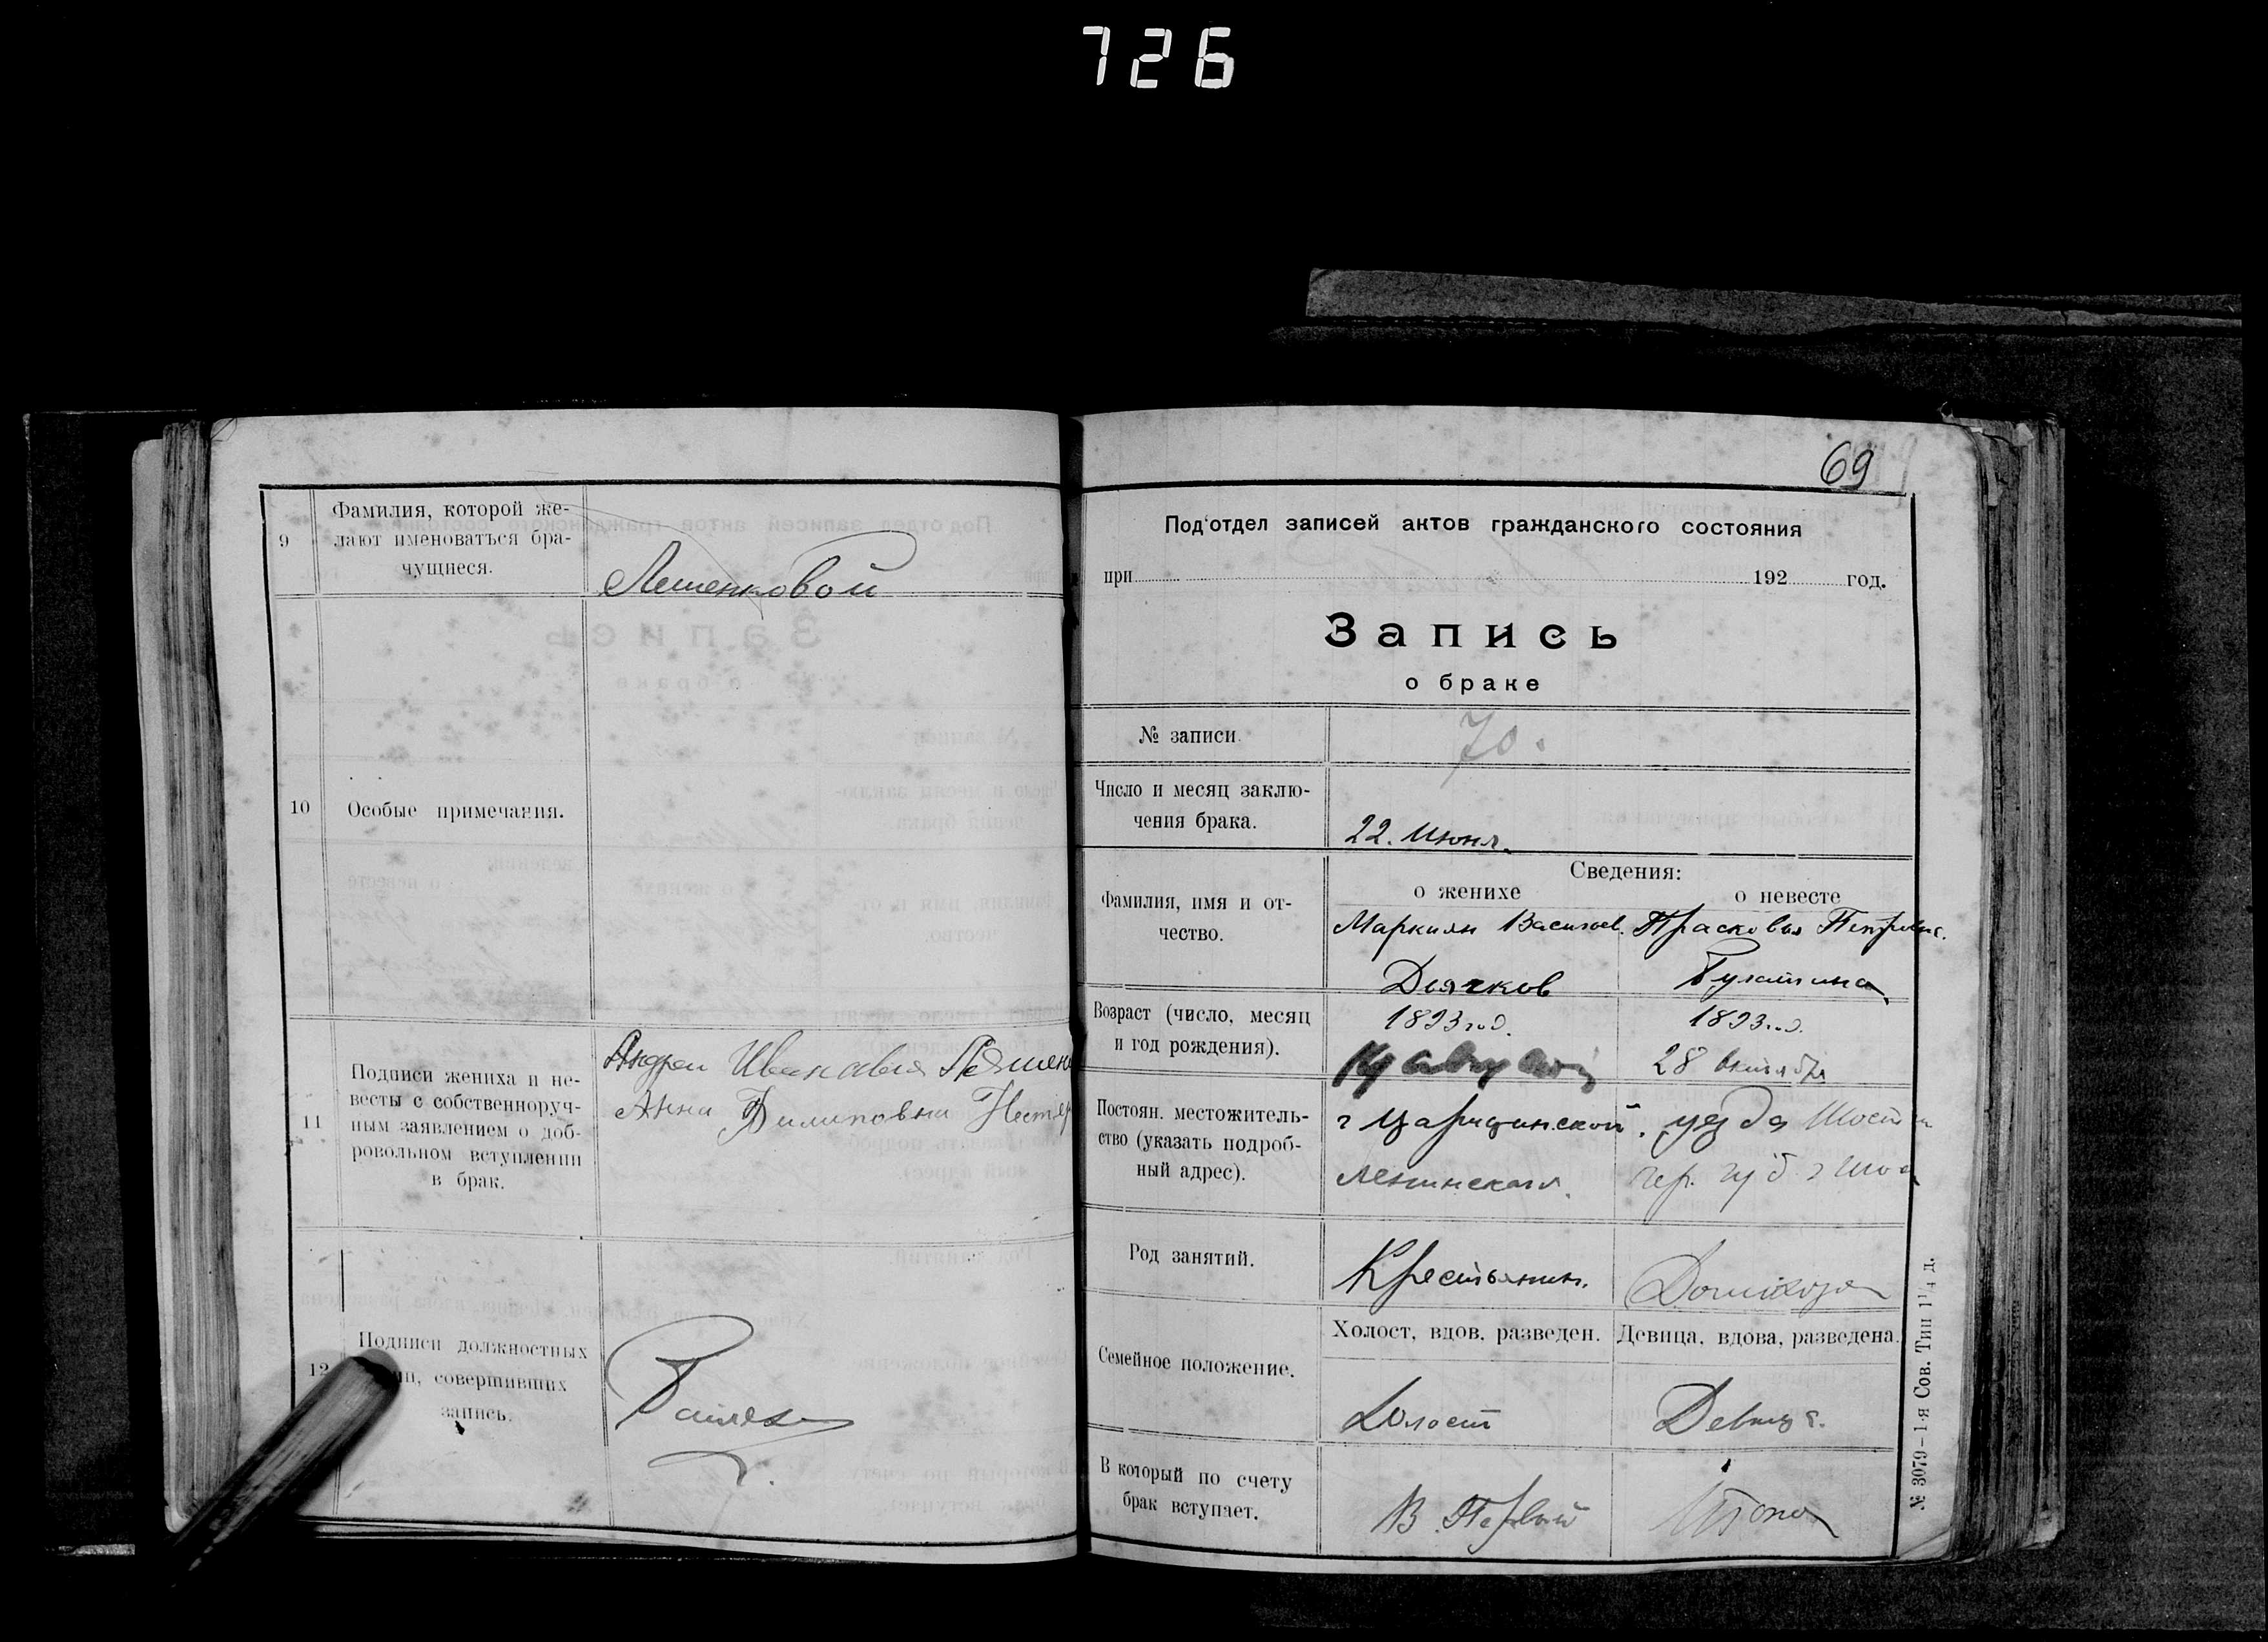 726
9
Фамилия, которой же-
лают именоваться бра-
чущиеся.
Лешенковой
10
Особые примечания.
11
Подписи жениха и не-
весты с собственноруч-
ным заявлением о доб-
ровольном вступлении
в брак.
Андреи Иванович
Анна Филиповна
12
Подписи должностных
совершивших
запись.
69
Подотдел записей актов гражданского состояния
при 192 год.
Запись
о браке
№ записи.
70.
Число и месяц заклю-
чения брака.
22. Июня.
Сведения:
Фамилия, имя и от-
чество.
о женихе
о невесте
Маркиян Васильев.
Прасковья Петровна.
Дьячков
Возраст (число, месяц
и год рождения).
1893 год.
1893 год.
28 октября
Постоян. местожитель-
ство (указать подроб-
ный адрес).
г Царицинской. уезда
Ленинского.
Род занятий.
Крестьянин.
Домохоз
Семейное положение.
Холост, вдов, разведен.
Девица, вдова, разведена.
Холост
Девица.
В который по счету
брак вступает.
В Первый
№ 3079–1-я Сов. Тип 1¼ д.